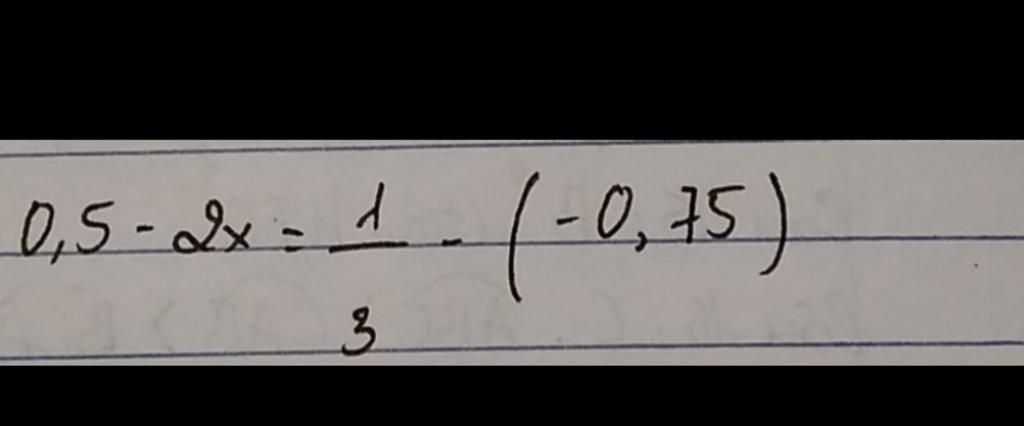 0,5 - 2x = 1/3 - (-0,75)